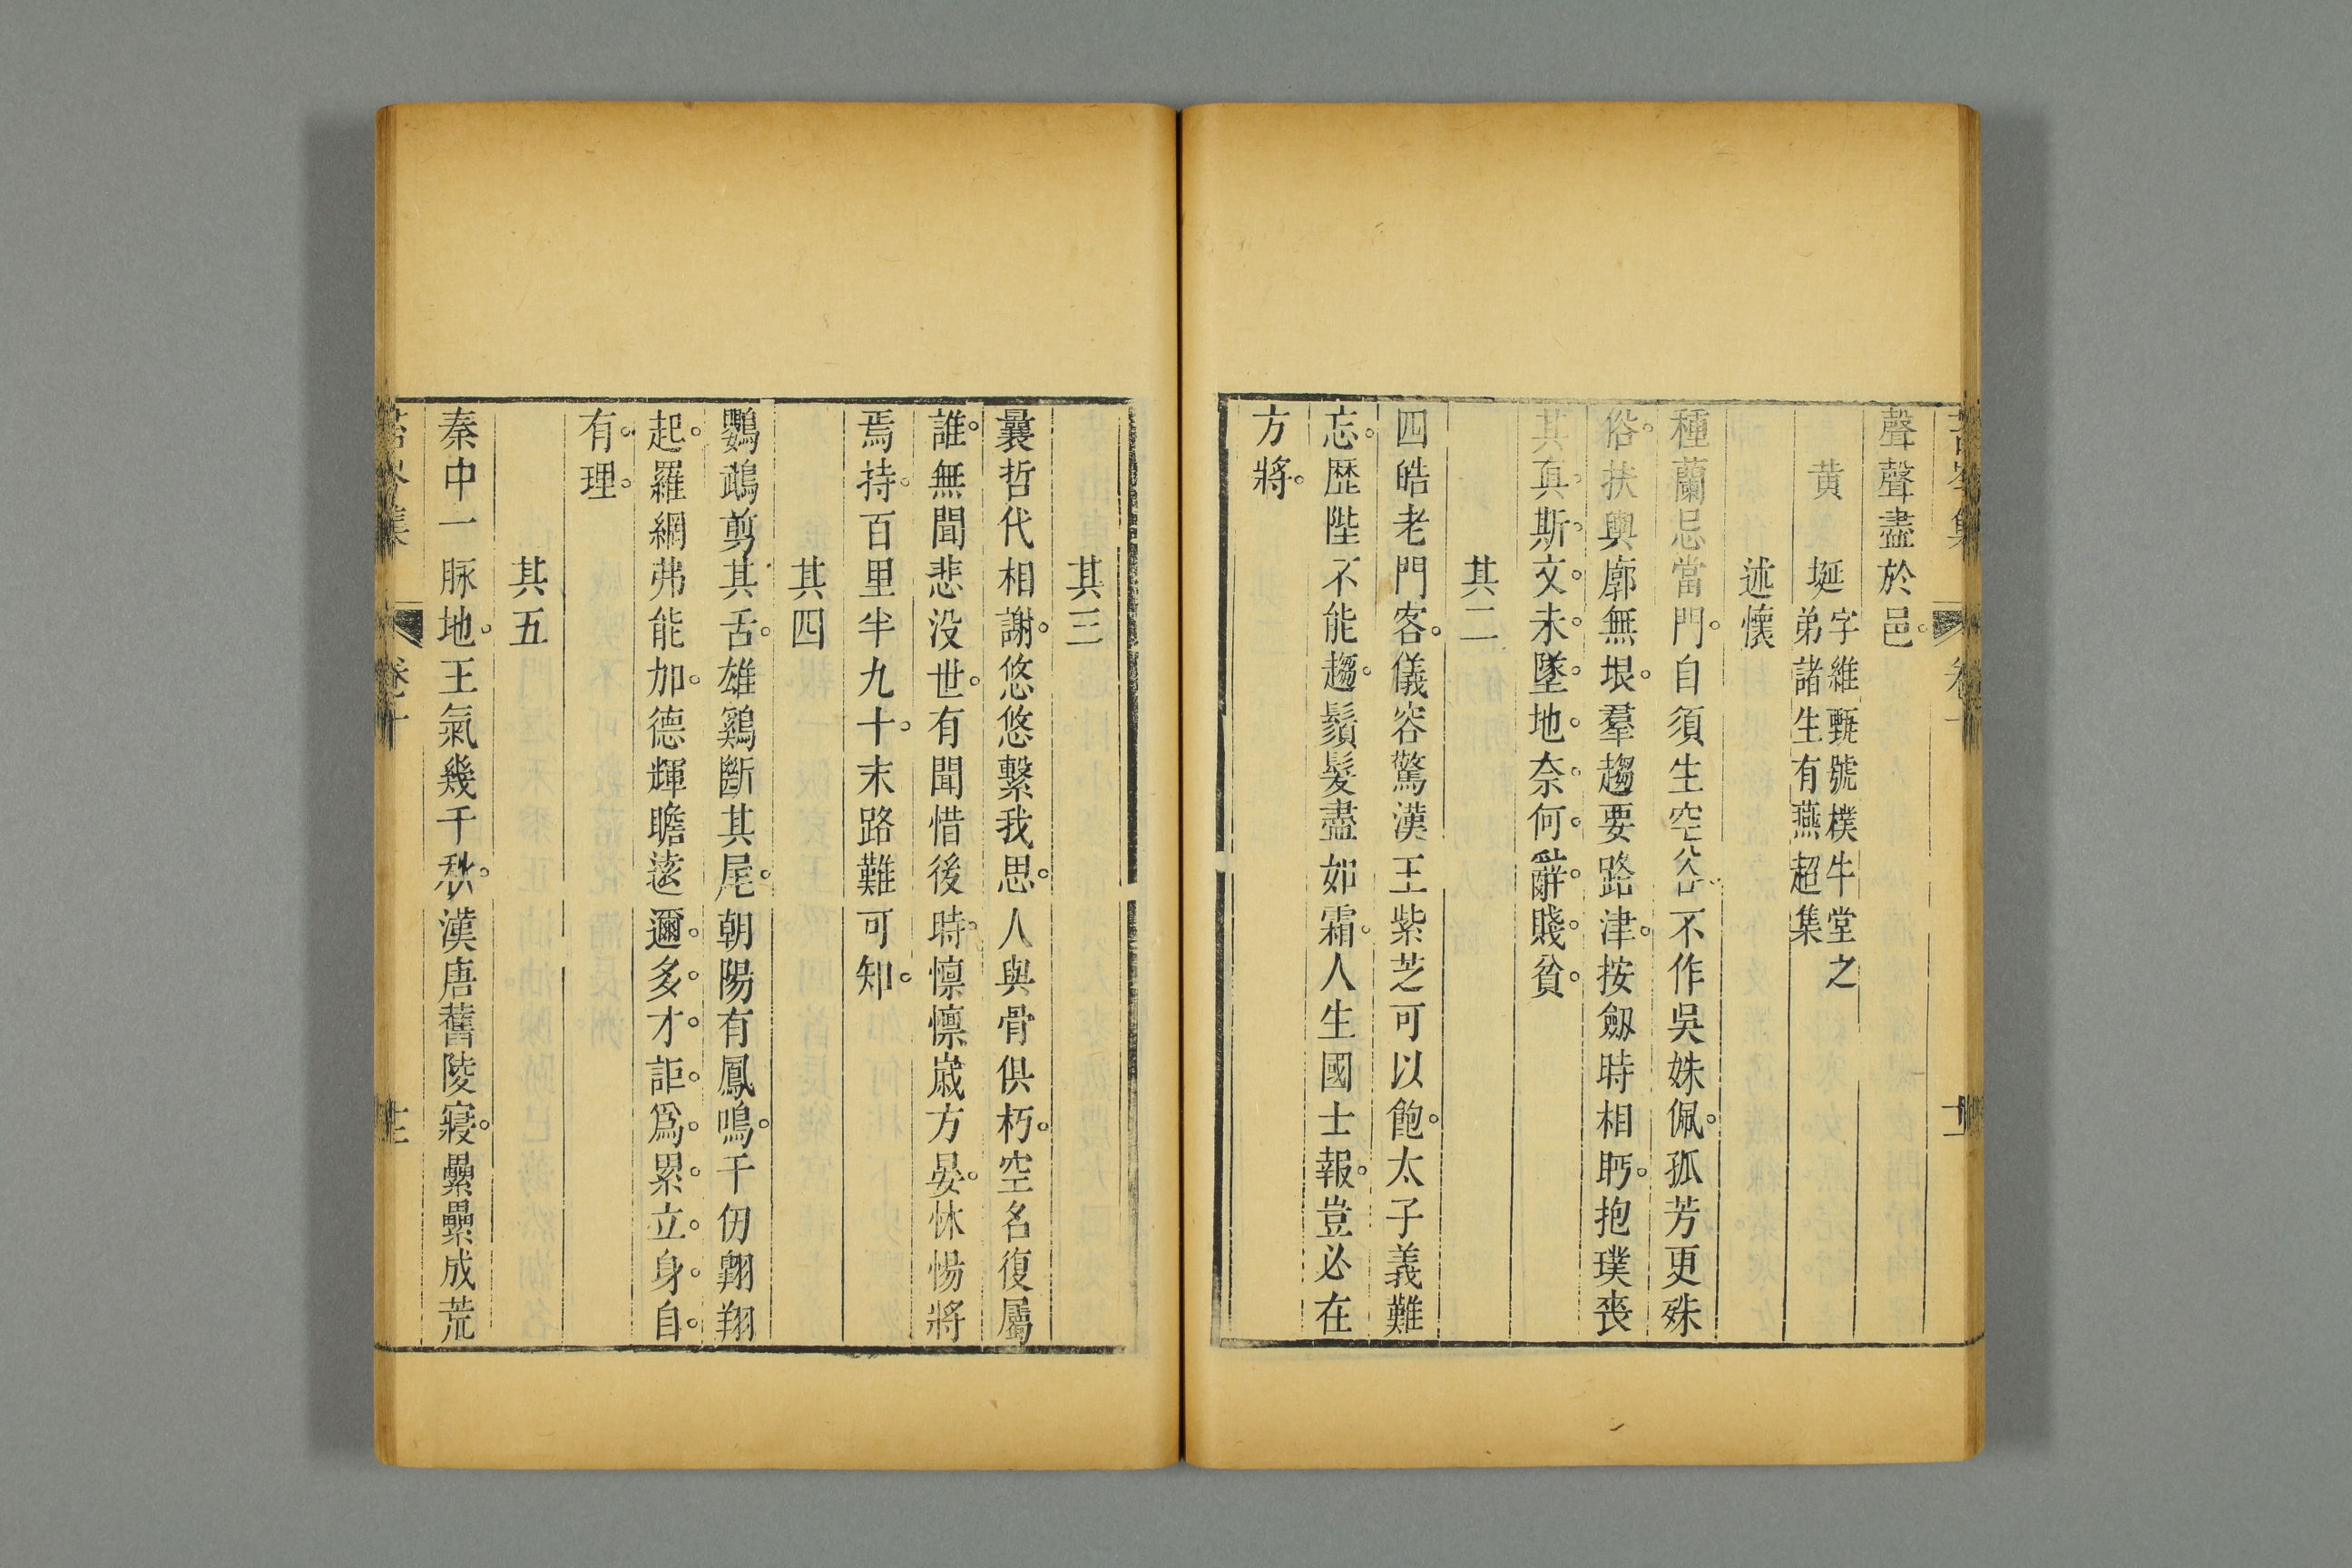 聲聲盡於邑。
黄　埏
字維甄號樸牛堂之
弟諸生有燕超集
述懷
種蘭忌當門。自須生空谷。不作吳姝佩。孤芳更殊
俗。扶輿廓無垠。羣趨要路津。按劔時相眄。抱璞喪
其真。斯。文。未。墜。地。奈。何。辭。賤。貧。
其二
四皓老門客。儀容驚漢王紫芝可以飽。太子義難
忘。歴陛不能趨。鬚髮盡如霜。人生國士報。豈必在
方將。
其三
曩哲代相謝。悠悠繫我思。人與骨俱朽。空名復屬
誰。無聞悲没世。有聞惜後時。懔懔嵗方晏。怵惕將
焉持。百里半九十。末路難可知。
其四
鸚鵡剪其舌。雄鷄斷其尾。朝陽有鳳鳴。千仞翺翔
起。羅網弗能加。德輝瞻遠邇。多。才。詎。爲。累。立。身。自。
有。理。
其五
秦中一脉地。王氣幾千秋。漢唐舊陵寢。纍纍成荒
卷十